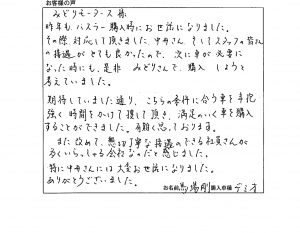 お客様の声
みどりモータース 様
昨年も ハスラー購入時にお世話になりました。
その際、対応して頂きました 中西さん、そしてスタッフの皆さん
の接遇が とても良かったので、次に車が必要に
なった時にも、是非 みどりさんで、購入しようと
考えていました。
期待していました通り、こちらの条件に合う車を手抱
強く 時間をかけて捜して頂き、満足のいく車を購入
することができました。有難く思っております。
また 改めて、懇切丁寧な接遇のできる社員さんが
多くいらっしゃる会社なのだと感じました。
特に中西さんには 大変お世話になりました。
ありがとうございました。
お名前 馬場剛 購入車種 デミオ